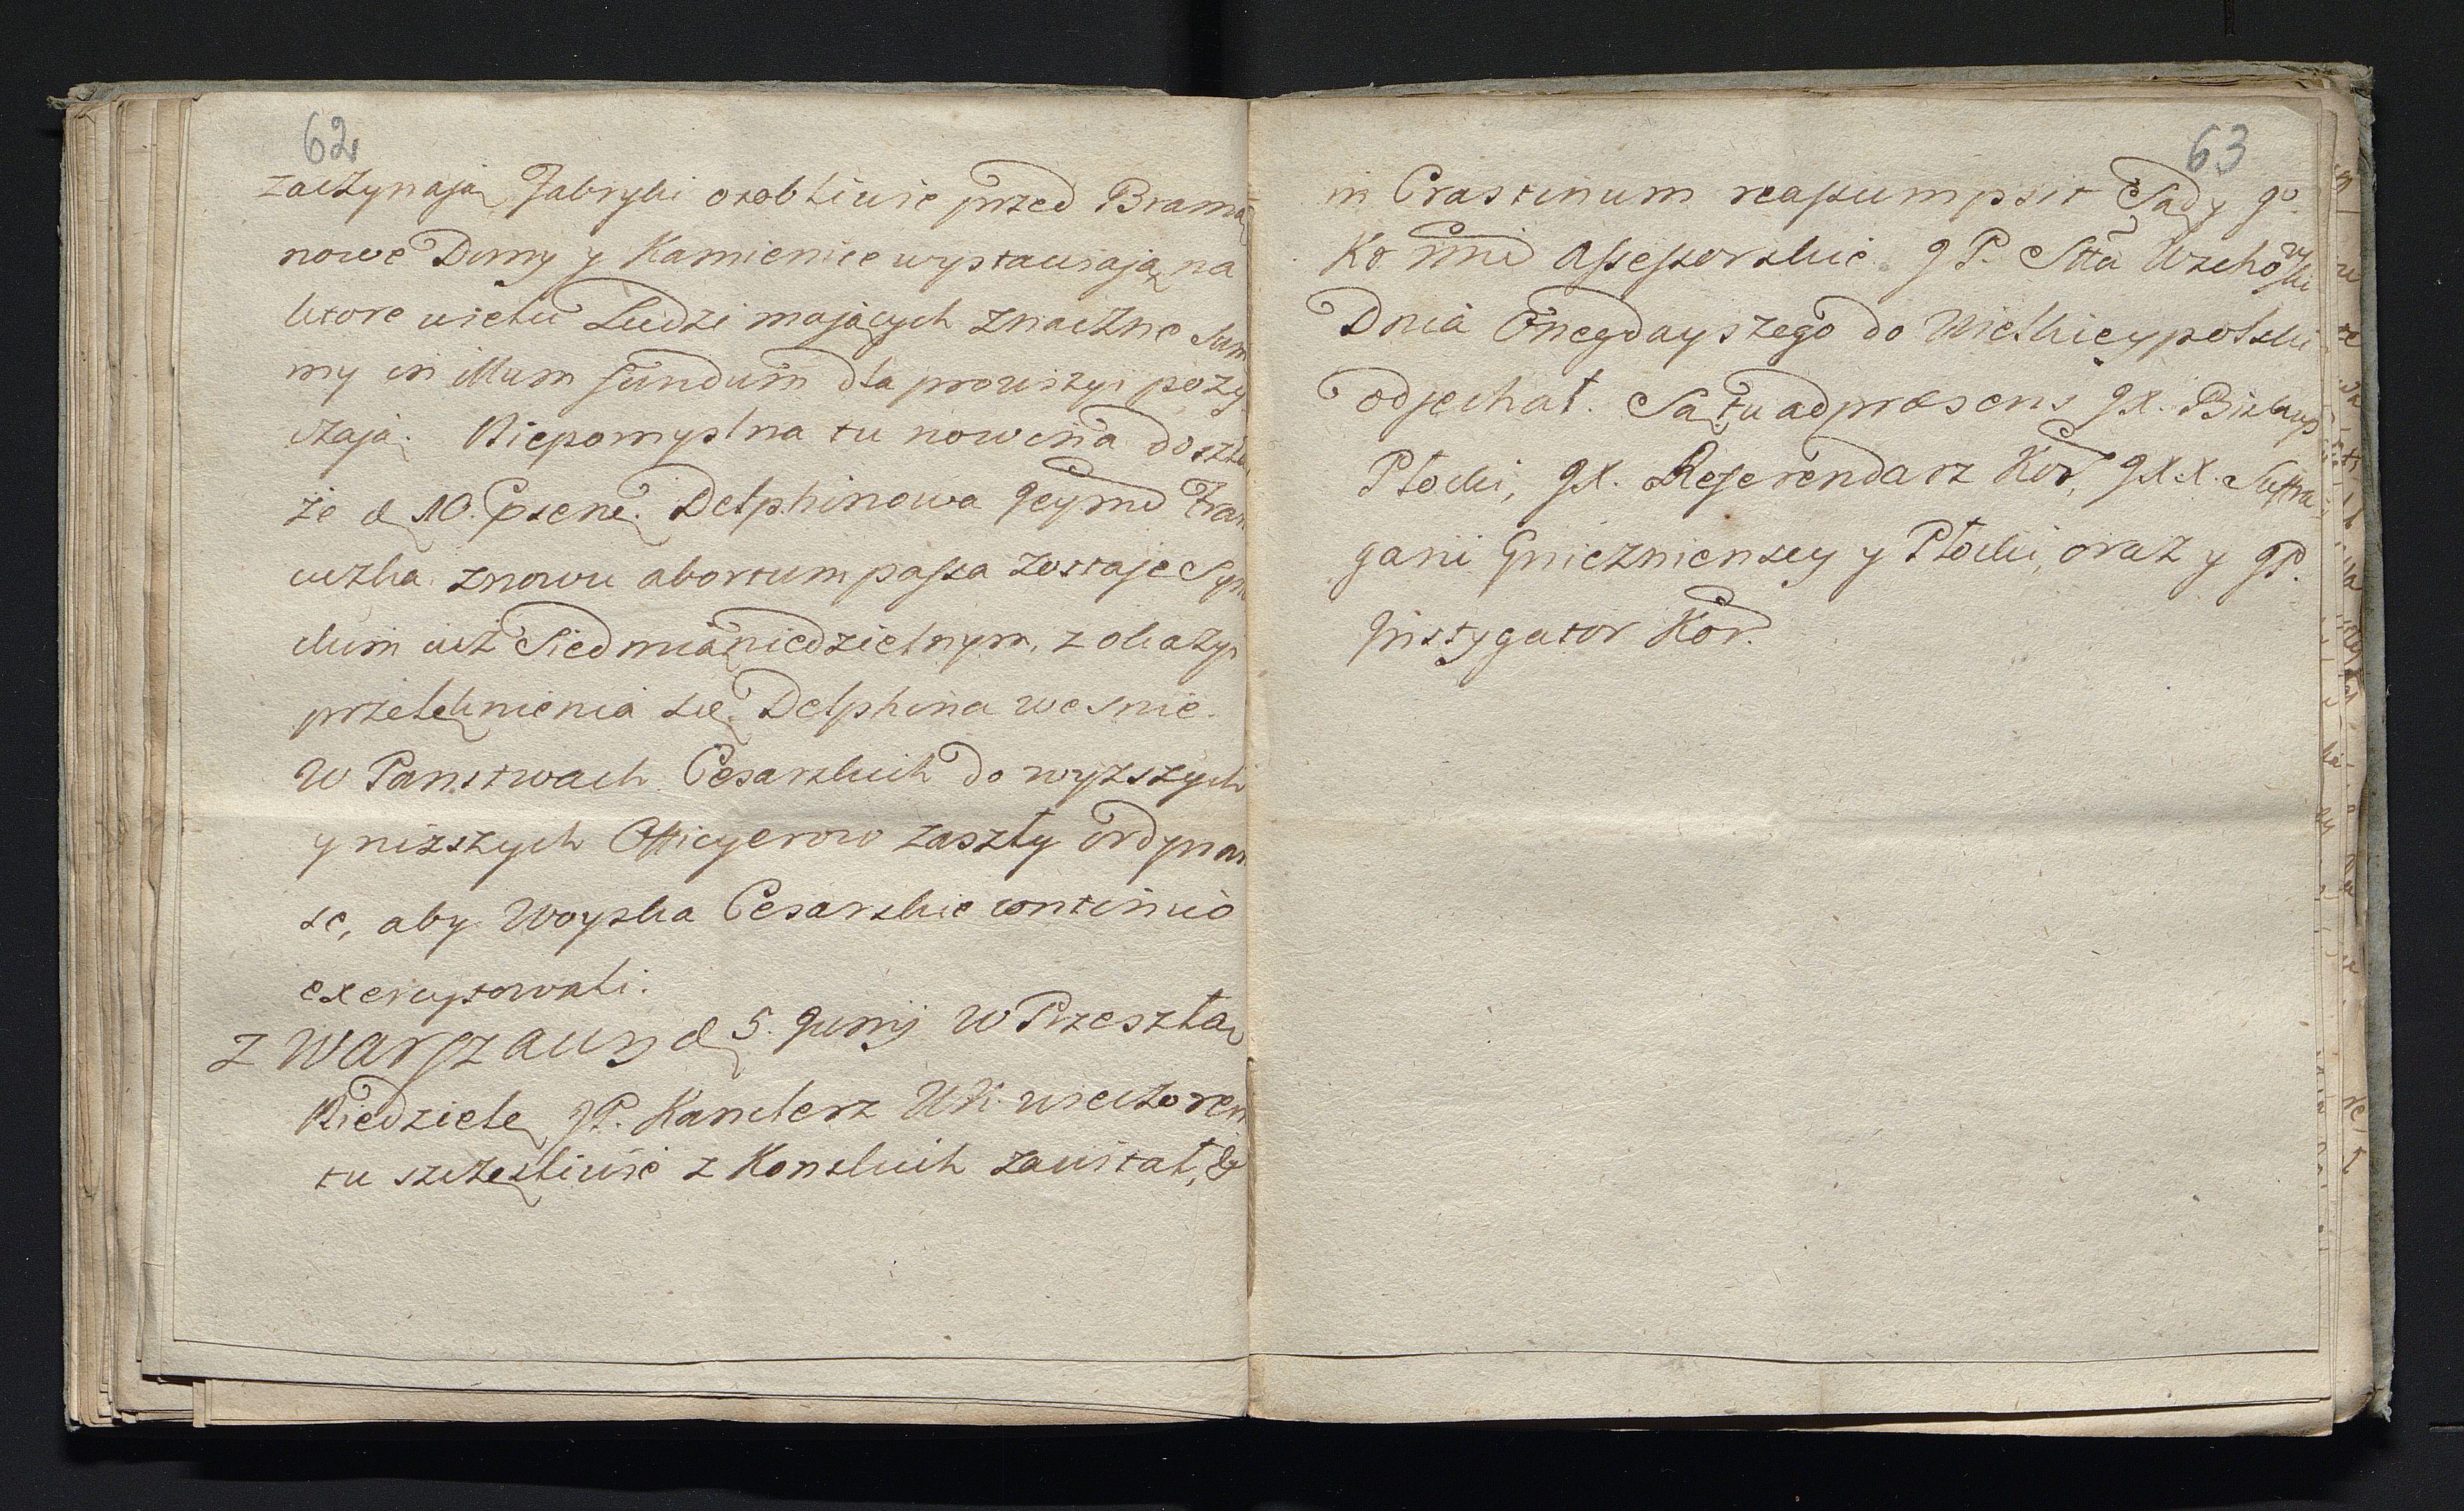 62
zaczynaią Fabryki osobliwie przed Bramą
nowe Domy y Kamienice wystawiaią na
ktore wielu Ludzi maiących znaczne Sum
my in illum fundum dla prowizyi pozy
czaią. Niepomyslna tu nowina doszła
że d 10. psene. Delphinowa Jeymć Fran
cuzka znowu abortum passa zostaje Syn
kum iuż Siedmianiedzielnym, z okazyi
przelęknienia się Delphina we snie.
W Panstwach Cesarskich do wyższych
y niższych Officyerow zaszły ordynan
se, aby Woyska Cesarskie continuò
exercytowali.
Z Warszawy d 5. Junij W Przeszłą
Niedzielę JP. Kanclerz WK. wieczorem
tu szczęśliwie z Konskich zawitał, &
63
in Crastinum reassumpsit Sądy go
Ko Imć Assessorskie. JP. Stta Wschowski
Dnia Onegdayszego do Wielkieypolski
odjechał. Są tu ad præsens JX. Biskup
Płocki, JX. Referendarz Kor, JX.X. Suffra
gani Gnieznienscy y Płocki, oraz y JP.
Instygator Kor.